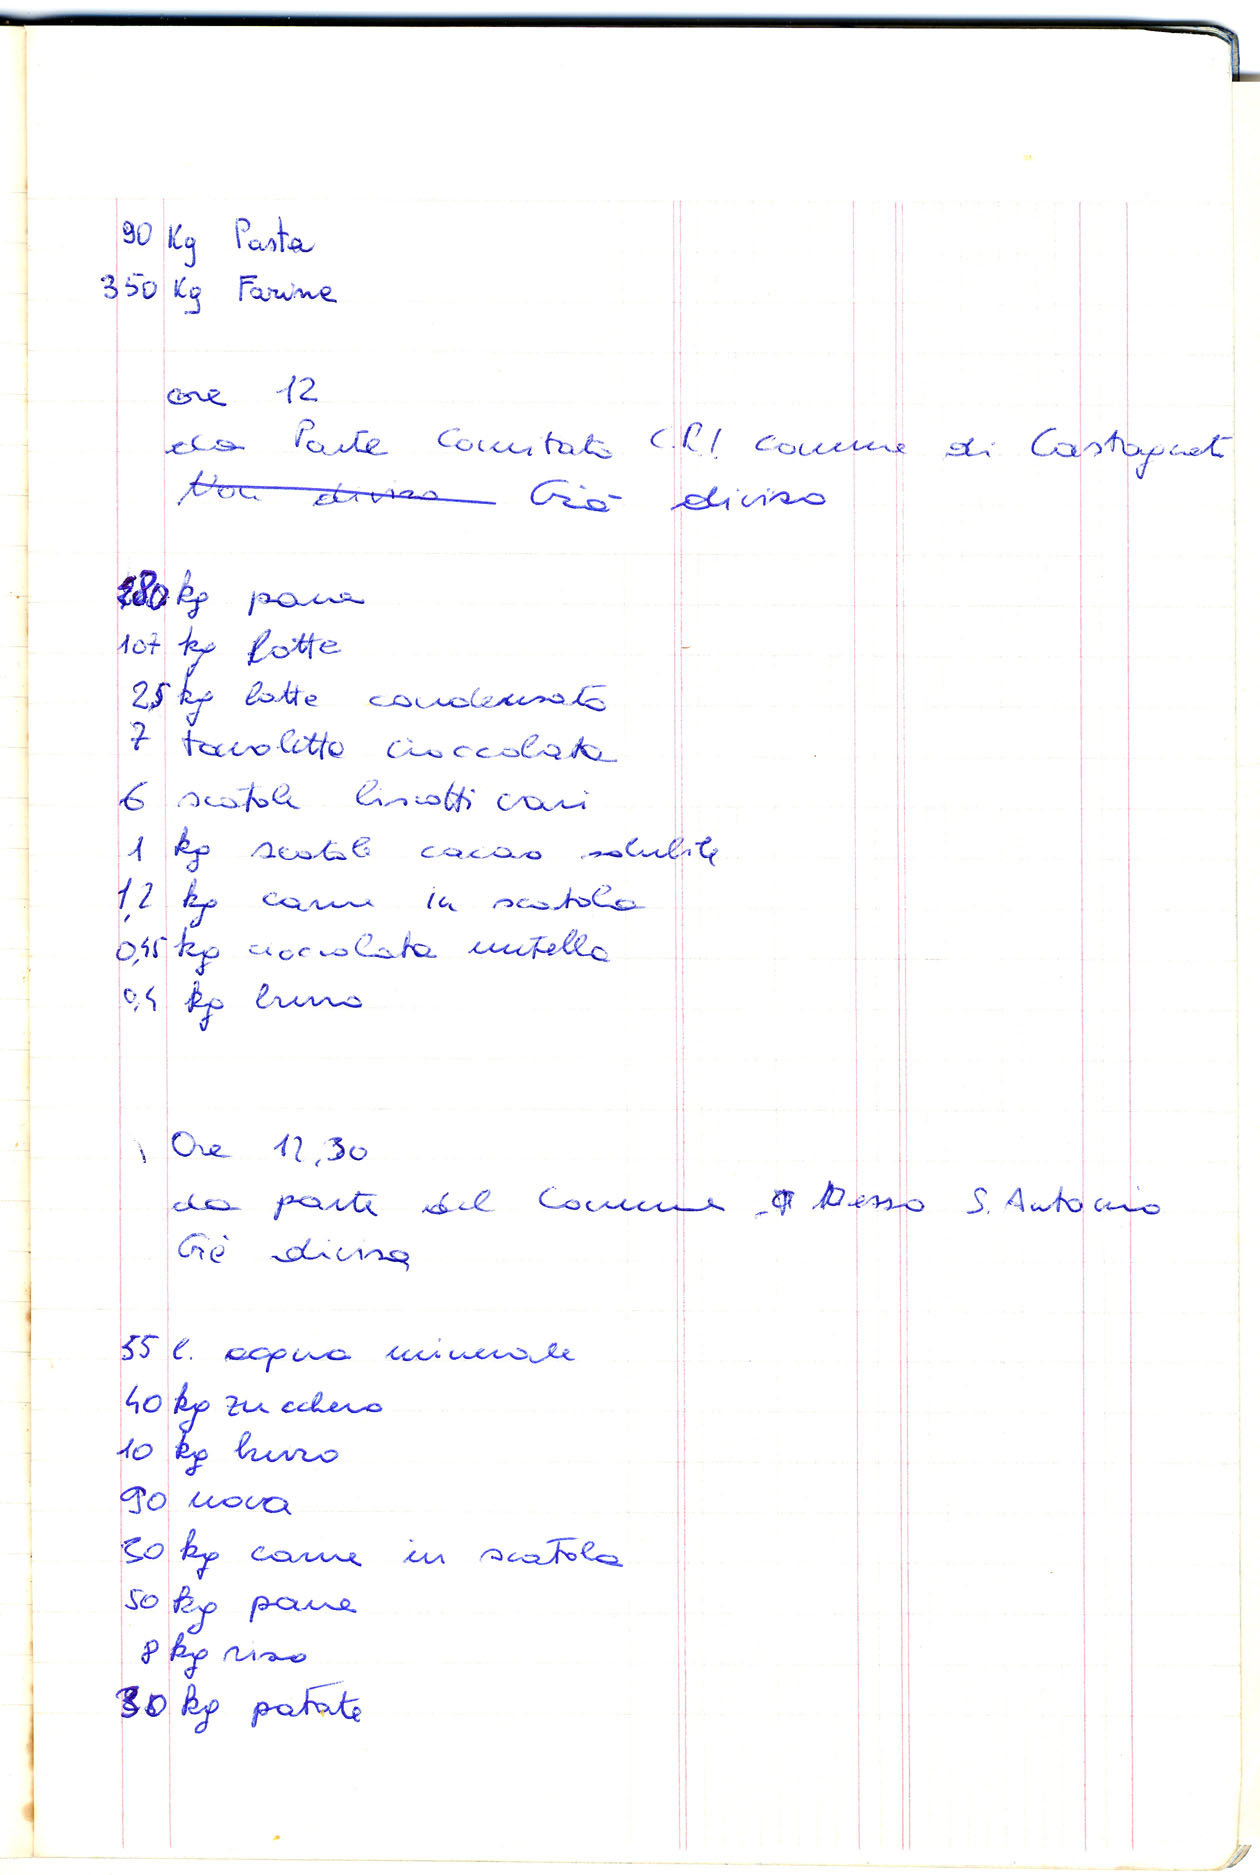 90 Kg Pasta
350 Kg Farine
ore 12
da Parte Comitato C.R.I. comune di Castagneto
Non diviso Già diviso
280 kg pane
107 kg latte
25 kg latte condensato
7 tavolette cioccolata
6 scatole biscotti vari
1 kg scatole cacao solubile
1,2 kg carne in scatola
0,45 kg cioccolata nutella
0,4 kg burro
Ore 12,30
da parte del Comune Messo S. Antonio
Già divisa
55 l. acqua minerale
40 kg zucchero
10 kg burro
90 uova
30 kg carne in scatola
50 kg pane
8 kg riso
30 kg patate